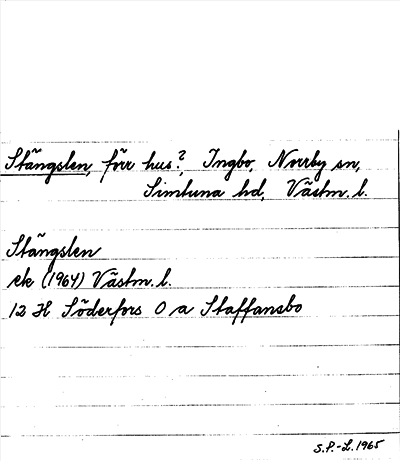 Stängslen, förr hus?, Ingbo, Norrby sn,
Simtuna hd, Västm. l.
Stängslen
ek (1964) Västm. l.
12 H Söderfors O a Staffansbo
S.P.-L. 1965